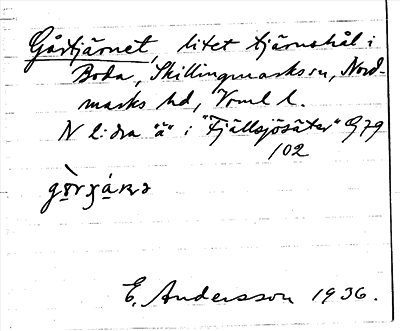 Gårtjärnet, litet tjärnshål i
Boda, Skillingmarks sn, Nord-
marks hd, Vrml l.
N l: dra "ä" i "Fjällsjösäter" G79
102
E. Andersson 1936.